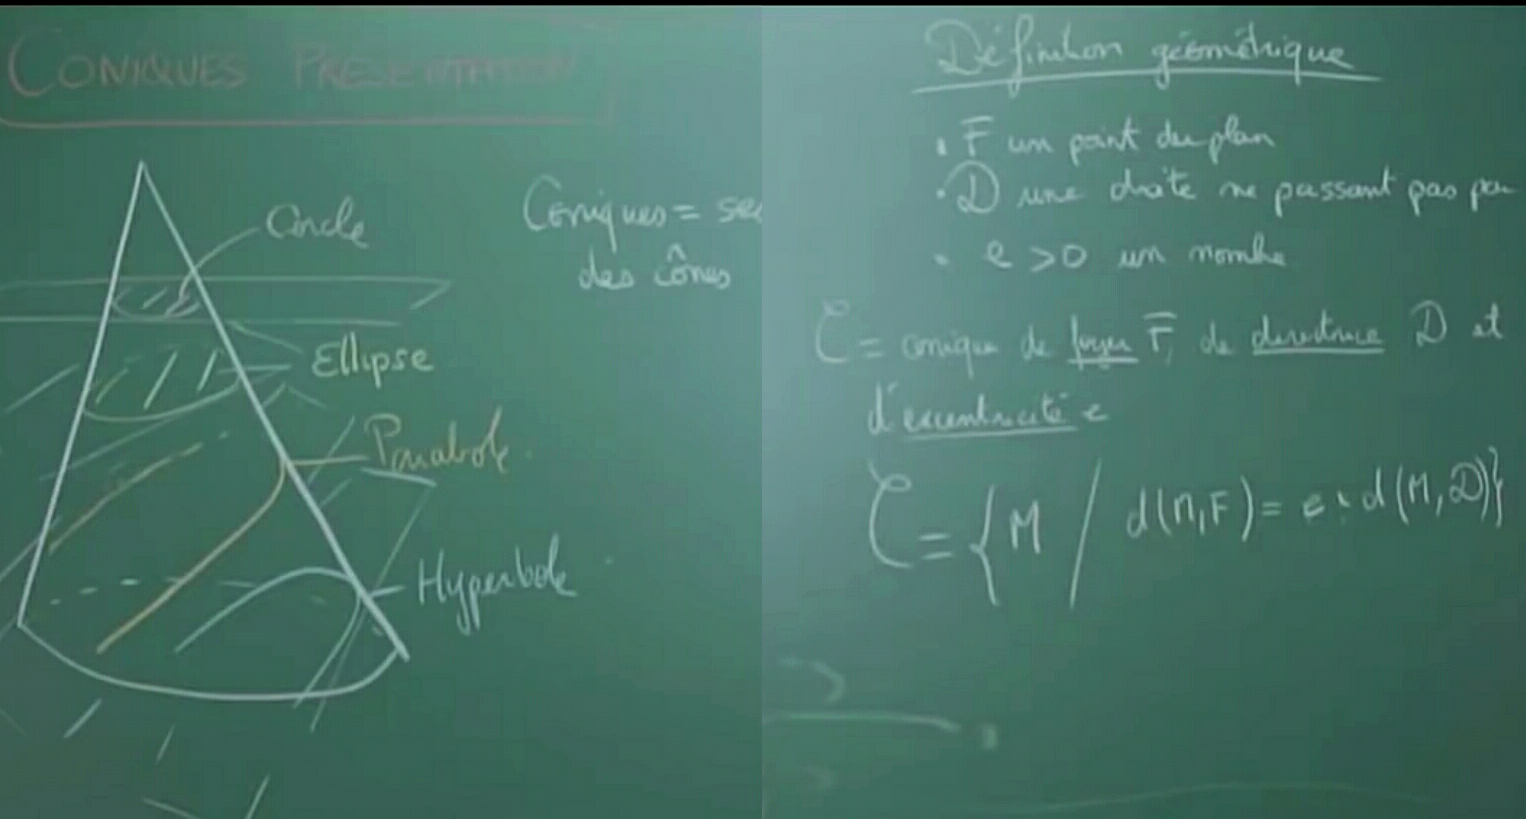 CONIQUES PRESENTATION
Cercle
Coniques = sec
des cônes
Ellipse
Parabole.
Hyperbole
Définition géométrique
• F un point du plan
• D une droite ne passant pas par
• e > 0 un nombre
C = conique de foyer F, de directrice D et
d'excentricité e
C = { M / d(M,F) = e × d(M,D)}